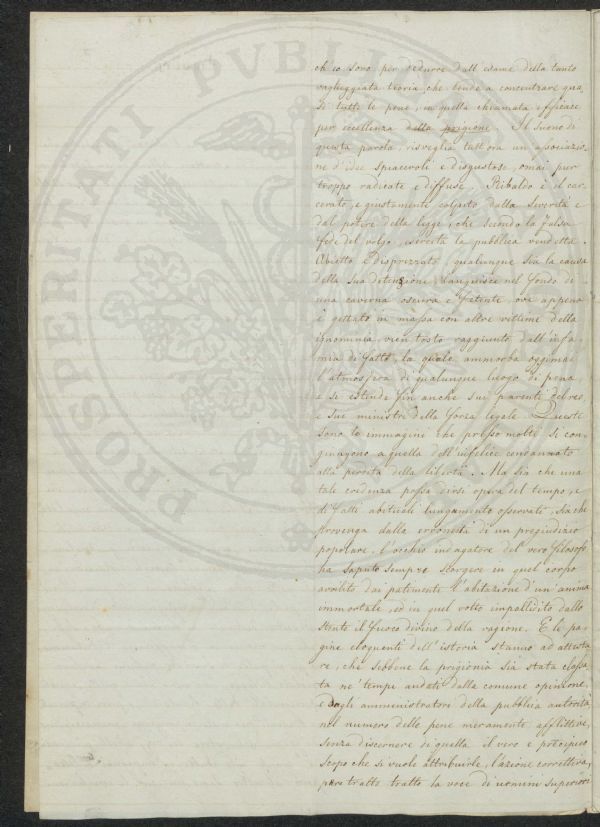 ch'io sono per dedurre dall'esame della tanto
vagheggiata teoria, che tende a concentrare qua,
si tutte le pene, in quella chiamata efficace
per eccellenza della prigione. Il suono di
questa parola, risveglia tutt'ora un'associazio,
ne d'idee spiacevoli e disgustose, omai pur
troppo radicate e diffuse. Ribaldo è il car,
cerato, e giustamente colpito dalla severità e
dal potere della legge, che secondo la falsa
fede del volgo, esercita la pubblica vendetta.
Abietto e disprezzato, qualunque sia la causa
della sua detenzione languisce nel fondo di
una caverna oscura e fetente, ove appena
è gettato in massa con altre vittime della
ignominia, vien tosto raggiunto dall'infa,
mia di fatto, la quale ammorba oggimai
l'atmosfera di qualunque luogo di pena
e si estende fin anche sui parenti del reo,
e sui ministri della forza legale. Queste
sono le immagini che presso molti si con,
giungono a quella dell'infelice condannato
alla perdita della libertà. Ma sia che una
tale credenza possa dirsi opera del tempo, e
di fatti abituali lungamente osservati, sia che
provenga dalla erroneità di un pregiudizio
popolare, l'occhio indagatore del vero filosofo
ha saputo sempre scorgere in quel corpo
avvilito dai patimenti l'abitazione d'un'anima
immortale, ed in quel volto impallidito dallo
stento il fuoco divino della ragione. E le pa,
gine eloquenti dell'istoria stanno ad attesta,
re, che sebbene la prigionia sia stata classa,
ta ne' tempi andati dalla comune opinione,
e dagli amministratori della pubblica autorità,
nel numero delle pene meramente afflittive,
senza discernere di quella il vero e precipuo
scopo che si vuole attribuirle, l'azione correttiva,
pure tratto tratto la voce di uomini superiori
PROSPERITATI PUBLICAE